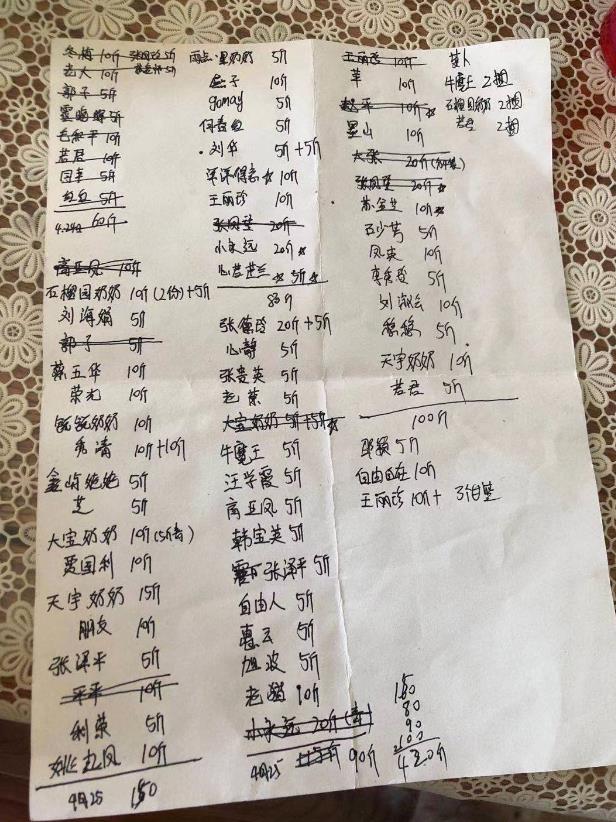 冬梅 10斤 张凤珍 5斤
老大 10斤
郭子 5斤
5斤
毛和平 10斤
若君 10斤
国丰 5斤
5斤
4.24日 60斤
商亚凤 10斤
石榴园奶奶 10斤(2份)+5斤
刘海娟 5斤
郭子 5斤
蔡五华 10斤
荣光 10斤
甜甜奶奶 10斤
秀清 10斤+10斤
5斤
芝 5斤
大宝奶奶 10斤(5斤青)
贾国利 10斤
天宇奶奶 15斤
朋友 10斤
张泽平 5斤
平平 10斤
利荣 5斤
赵凤 10斤
4月25 150
奶奶 5斤
燕子 10斤
gomay 5斤
何春血 5斤
刘华 5斤+5斤
洋洋得意 10斤
王丽珍 10斤
张凤莹 20斤
小永远 20斤
心若芷兰 5斤
80斤
张德珍 20斤+5斤
心静 5斤
张贵英 5斤
赵荣 5斤
大宝奶奶 5斤+5斤
牛魔王 5斤
汪学霞 5斤
商亚凤 5斤
韩宝英 5斤
张泽平 5斤
自由人 5斤
惠云 5斤
旭波 5斤
老猫 10斤
小永远 20斤(青)
4月25 115斤 90斤
王丽珍 10斤
苹 10斤
赵平 10斤
星山 10斤
大张 20斤
张凤莹 20斤
苏金生 10斤
石少芳 5斤
凤来 10斤
5斤
刘淑云 10斤
悠悠 5斤
天宇奶奶 10斤
若君 5斤
100斤
邵颖 5斤
自由自在 10斤
王丽珍 10斤+ 3个白
萝卜
牛魔王 2捆
石榴园奶奶 2捆
若君 2捆
150
80
90
100
420斤